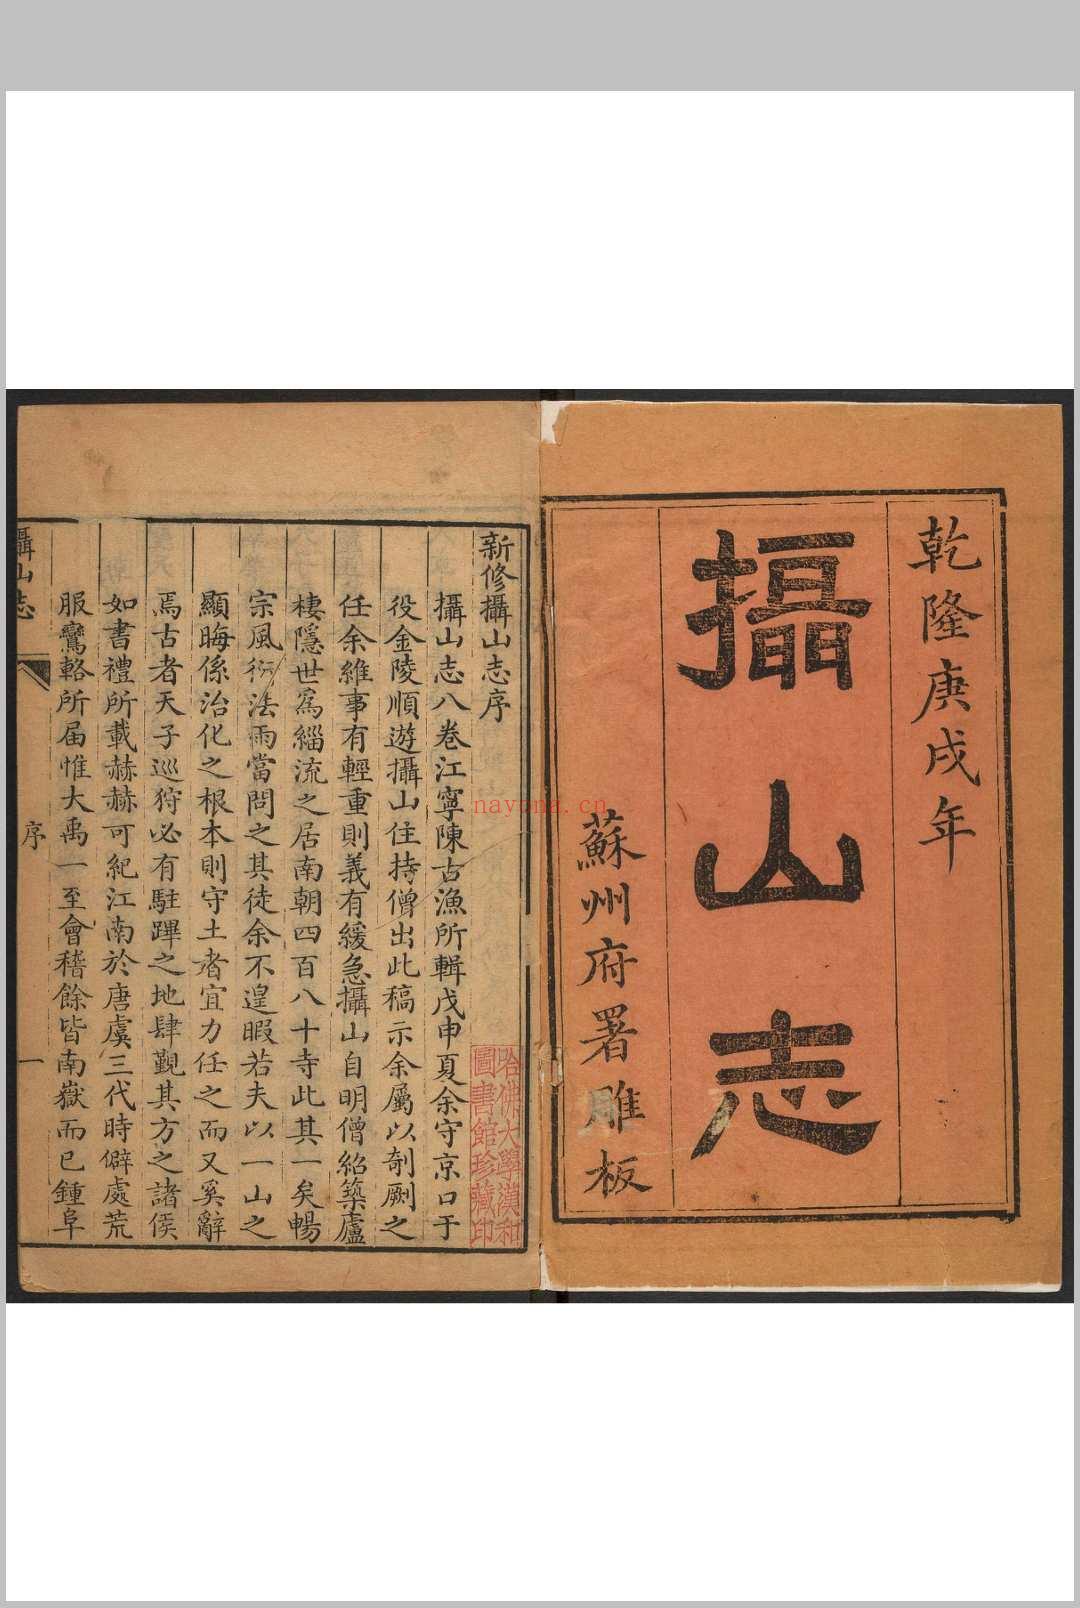 乾隆庚戌年
攝山志
蘇州府署雕板
新修攝山志序
攝山志八卷江寧陳古漁所輯戊申夏余守京口于
役金陵順遊攝山住持僧出此稿示余屬以剞劂之
任余維事有輕重則義有緩急攝山自明僧紹築廬
棲隱世爲緇流之居南朝四百八十寺此其一矣暢
宗風衍法雨當問之其徒余不遑暇若夫以一山之
顯晦係治化之根本則守土者宜力任之而又奚辭
焉古者天子巡狩必有駐蹕之地肆覲其方之諸侯
如書禮所載赫赫可紀江南於唐虞三代時僻處荒
服鸞輅所届惟大禹一至會稽餘皆南嶽而已鍾阜
攝山志
序
一
哈佛大學漢和
圖書館珍藏印
nayona.cn